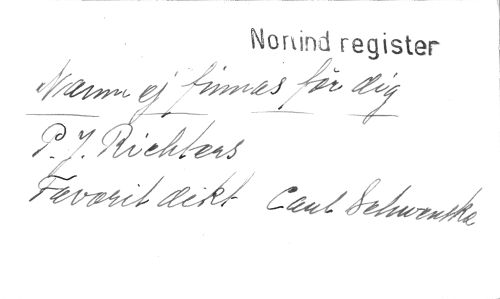 Norlind register
Namn ej finnas för dig
P. J. Richters
Favorit dikt Carl Schwenske